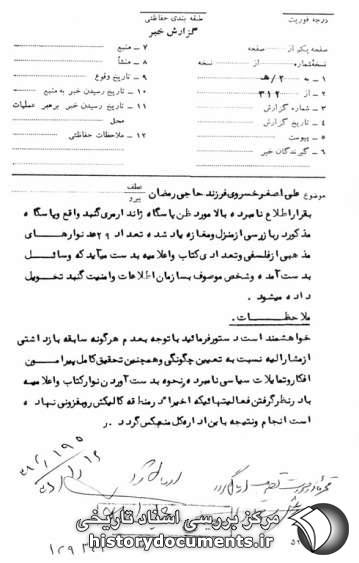 درجه فوریت
طبقه بندی حفاظتی
گزارش خبر
صفحه یکم از صفحه
نسخه شماره از نسخه
۱ - به ۲/هـ
۲ - از ۳۱۲
۳ - شماره گزارش
۴ - تاریخ گزارش
۵ - پیوست
۶ - گیرندگان خبر
۷ - منبع
۸ - منشأ
۹ - تاریخ وقوع
۱۰ - تاریخ رسیدن خبر به منبع
۱۱ - تاریخ رسیدن خبر برهبر عملیات
محل
۱۲ - ملاحظات حفاظتی
موضوع علی اصغر خسروی فرزند حاجی رمضان
عطف
پیرو
بقرار اطلاع نامبرده بالا مورد ظن پاسگاه ژاندارمری گنبد واقع و پاسگاه
مذکور در بازرسی از منزل و مغازه یاد شده تعداد ۲۹ عدد نوارهای
مذهبی از فلسفی و تعدادی کتاب و اعلامیه بدست میآید که وسائل
بدست آمده و شخص موصوف بسازمان اطلاعات و امنیت گنبد تحویل
داده میشود.
ملاحظات.
خواهشمند است دستور فرمائید با توجه بعدم هرگونه سابقه بازداشتی
از مشارالیه نسبت به تعیین چگونگی و همچنین تحقیق کامل پیرامون
افکار و تمایلات سیاسی نامبرده و نحوه بدست آوردن نوار کتاب و اعلامیه
با در نظر گرفتن فعالیتهائیکه اخیرا در منطقه کالیکش رو بفزونی نهاده
است انجام و نتیجه باین اداره کل منعکس گردد. ز
مرکز بررسی اسناد تاریخی
historydocuments.ir